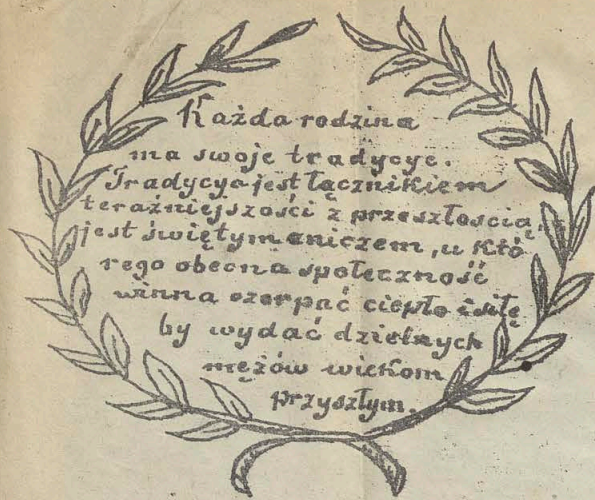 Każda rodzina
ma swoje tradycye.
Tradycya jest łącznikiem
teraźniejszości z przeszłoscią,
jest świętym zniczem, u któ
rego obecna społeczność
winna czerpać ciepło i siłę
by wydać dzielnych
mężów wiekom
przyszłym.